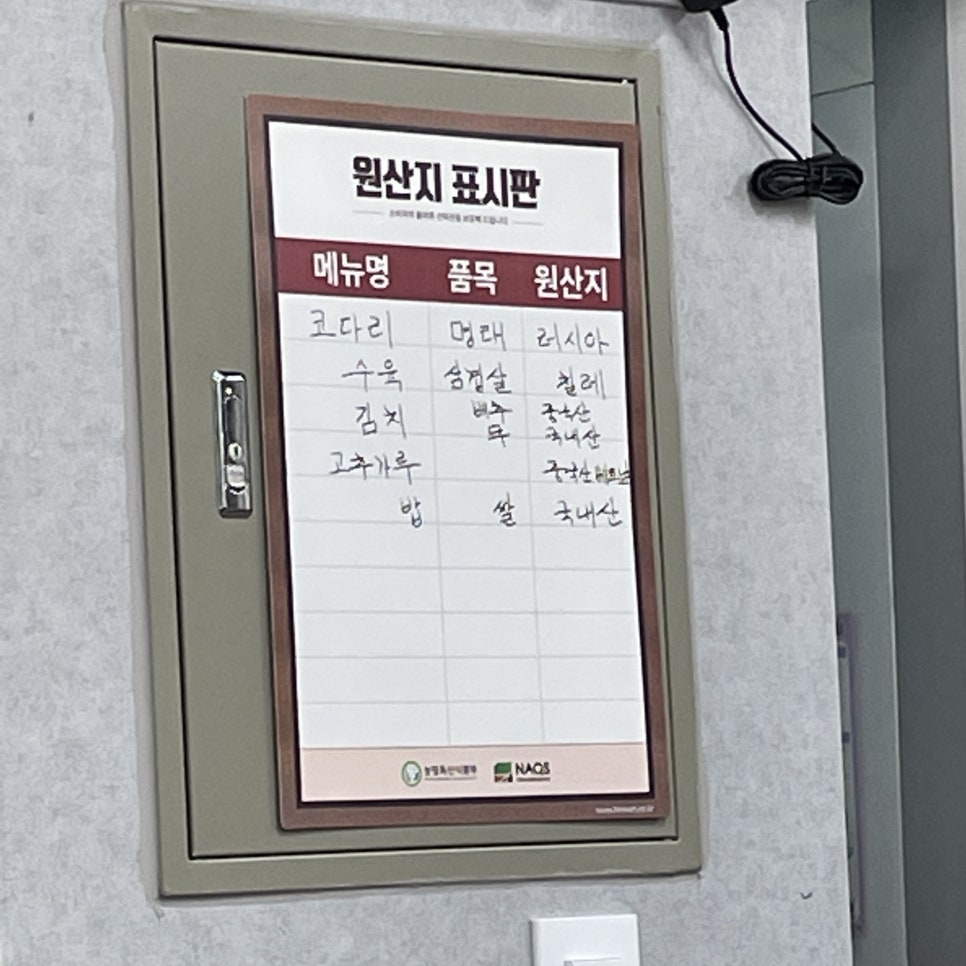 원산지 표시판
메뉴명 품목 원산지
코다리 명태 러시아
수육 삼겹살 칠레
김치 배추 중국산
무 국내산
고추가루 중국산 베트남
밥 쌀 국내산
농림축산식품부 NAQS